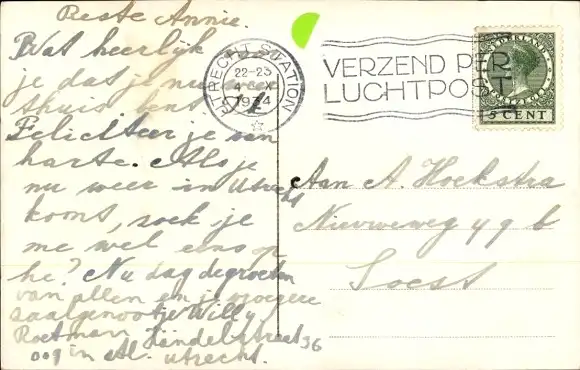 Beste Annie.
Wat heerlijk
je dat je nu weer
thuis bent.
Feliciteer je van
harte. Als je
nu weer in Utrecht
komt, zoek je
me wel eens op
he? Nu dag de groeten
van allen en je vroegere
zaalgenootje Willy
Roetman Händelstraat 36
oog in Al. Utrecht.
UTRECHT STATION
22-23
1934
VERZEND PER
LUCHTPOST
NEDERLAND
5 CENT
Aan A. Hoekstra
Nieuweweg 49 b
Soest